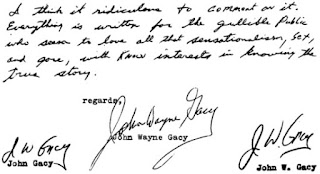 I think it ridiculous to comment on it.
Everything is written for the gullible Public
who seem to love all that sensationalism, Sex,
and gore, with Know interests in knowing the
true story.
regards,
J W Gacy
John Wayne Gacy
J. W. Gacy
John Gacy
John Wayne Gacy
John W. Gacy